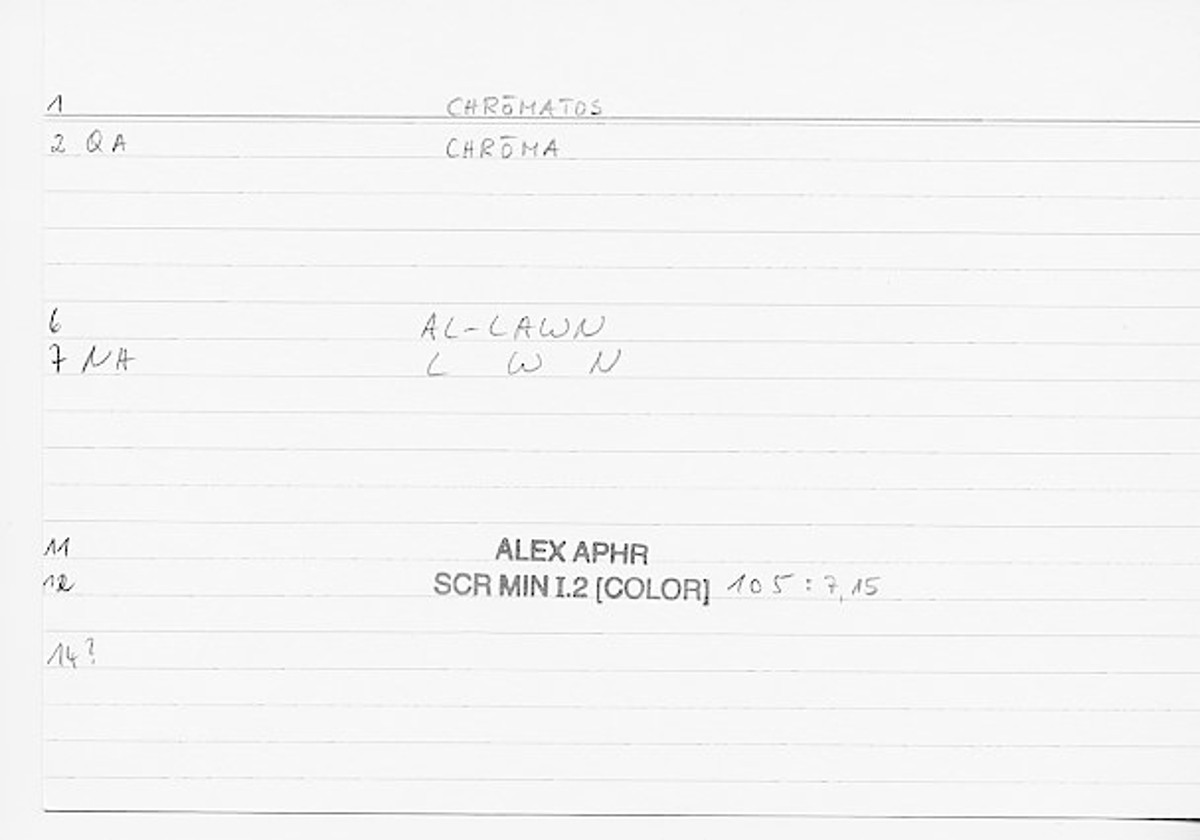 1 CHRŌMATOS
2 QA CHRŌMA
6 AL-LAWN
7 NA L W N
11 ALEX APHR
12 SCR MIN I.2 [COLOR] 105:7,15
14?